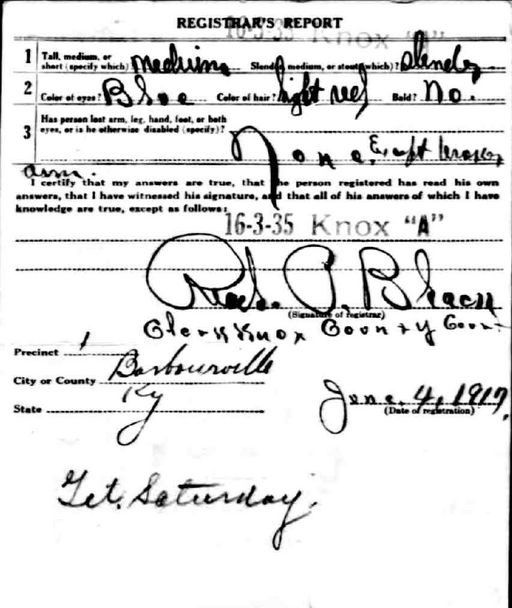 REGISTRAR'S REPORT
16-3-35 Knox "A"
1 Tall, medium, or short (specify which)? Medium Slender, medium, or stout (which)? Slender
2 Color of eyes? Blue Color of hair? light red Bald? No.
3 Has person lost arm, leg, hand, foot, or both eyes, or is he otherwise disabled (specify)?
None. Except broken
arm.
I certify that my answers are true, that the person registered has read his own
answers, that I have witnessed his signature, and that all of his answers of which I have
knowledge are true, except as follows:
16-3-35 Knox "A"
P. Black
(Signature of registrar)
Clerk Knox County Court
Precinct 1
City or County Barbourville
State Ky
June. 4, 1917,
(Date of registration)
Saturday.